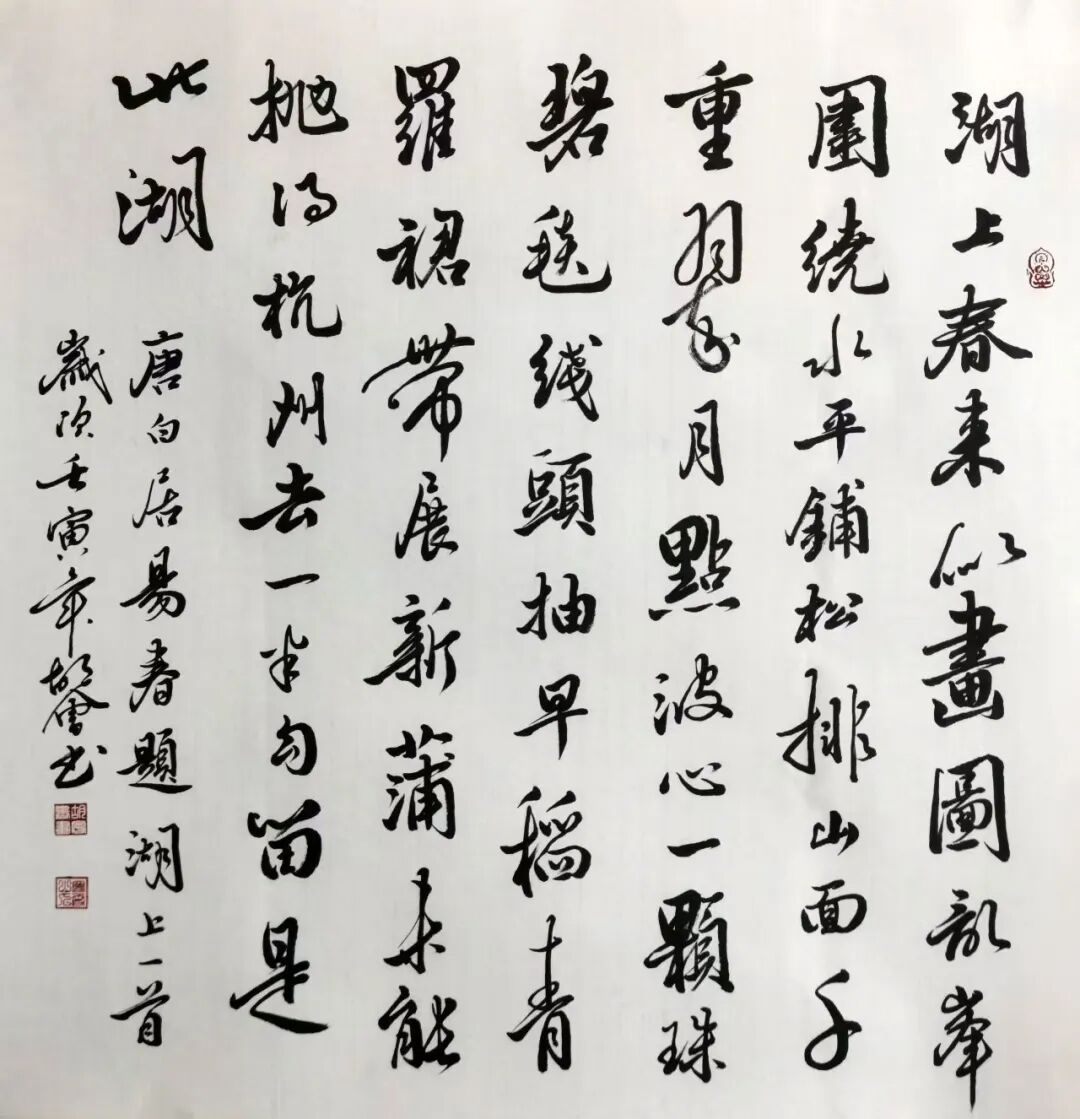 湖上春来似畫圖亂峯
圍繞水平鋪松排山面千
重翠月點波心一顆珠
碧毯綫頭抽早稻青
羅裙帶展新蒲未能
抛得杭州去一半勾留是
此湖
唐白居易春題湖上一首
歲次壬寅年胡书